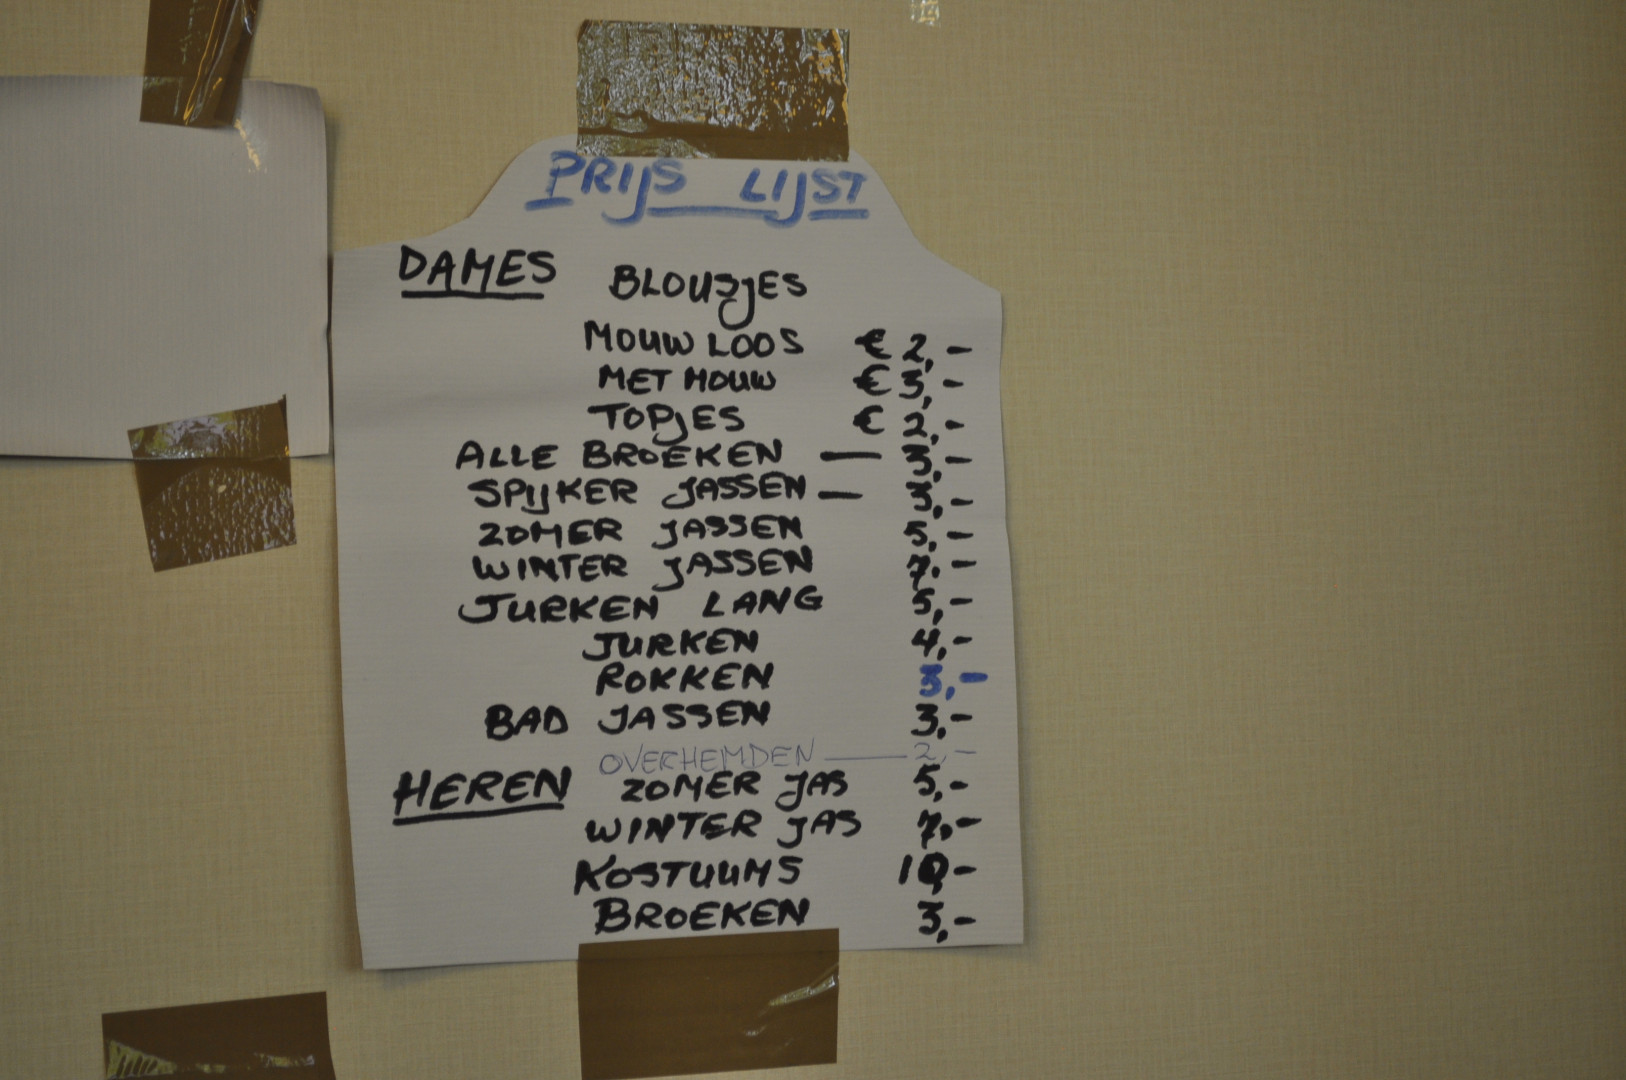 PRIJS LIJST
DAMES BLOUSJES
MOUW LOOS € 2,-
MET MOUW € 3,-
TOPJES € 2,-
ALLE BROEKEN — 3,-
SPIJKER JASSEN — 3,-
ZOMER JASSEN 5,-
WINTER JASSEN 7,-
JURKEN LANG 5,-
JURKEN 4,-
ROKKEN 3,-
BAD JASSEN 3,-
OVERHEMDEN — 2,-
HEREN ZOMER JAS 5,-
WINTER JAS 7,-
KOSTUUMS 10,-
BROEKEN 3,-